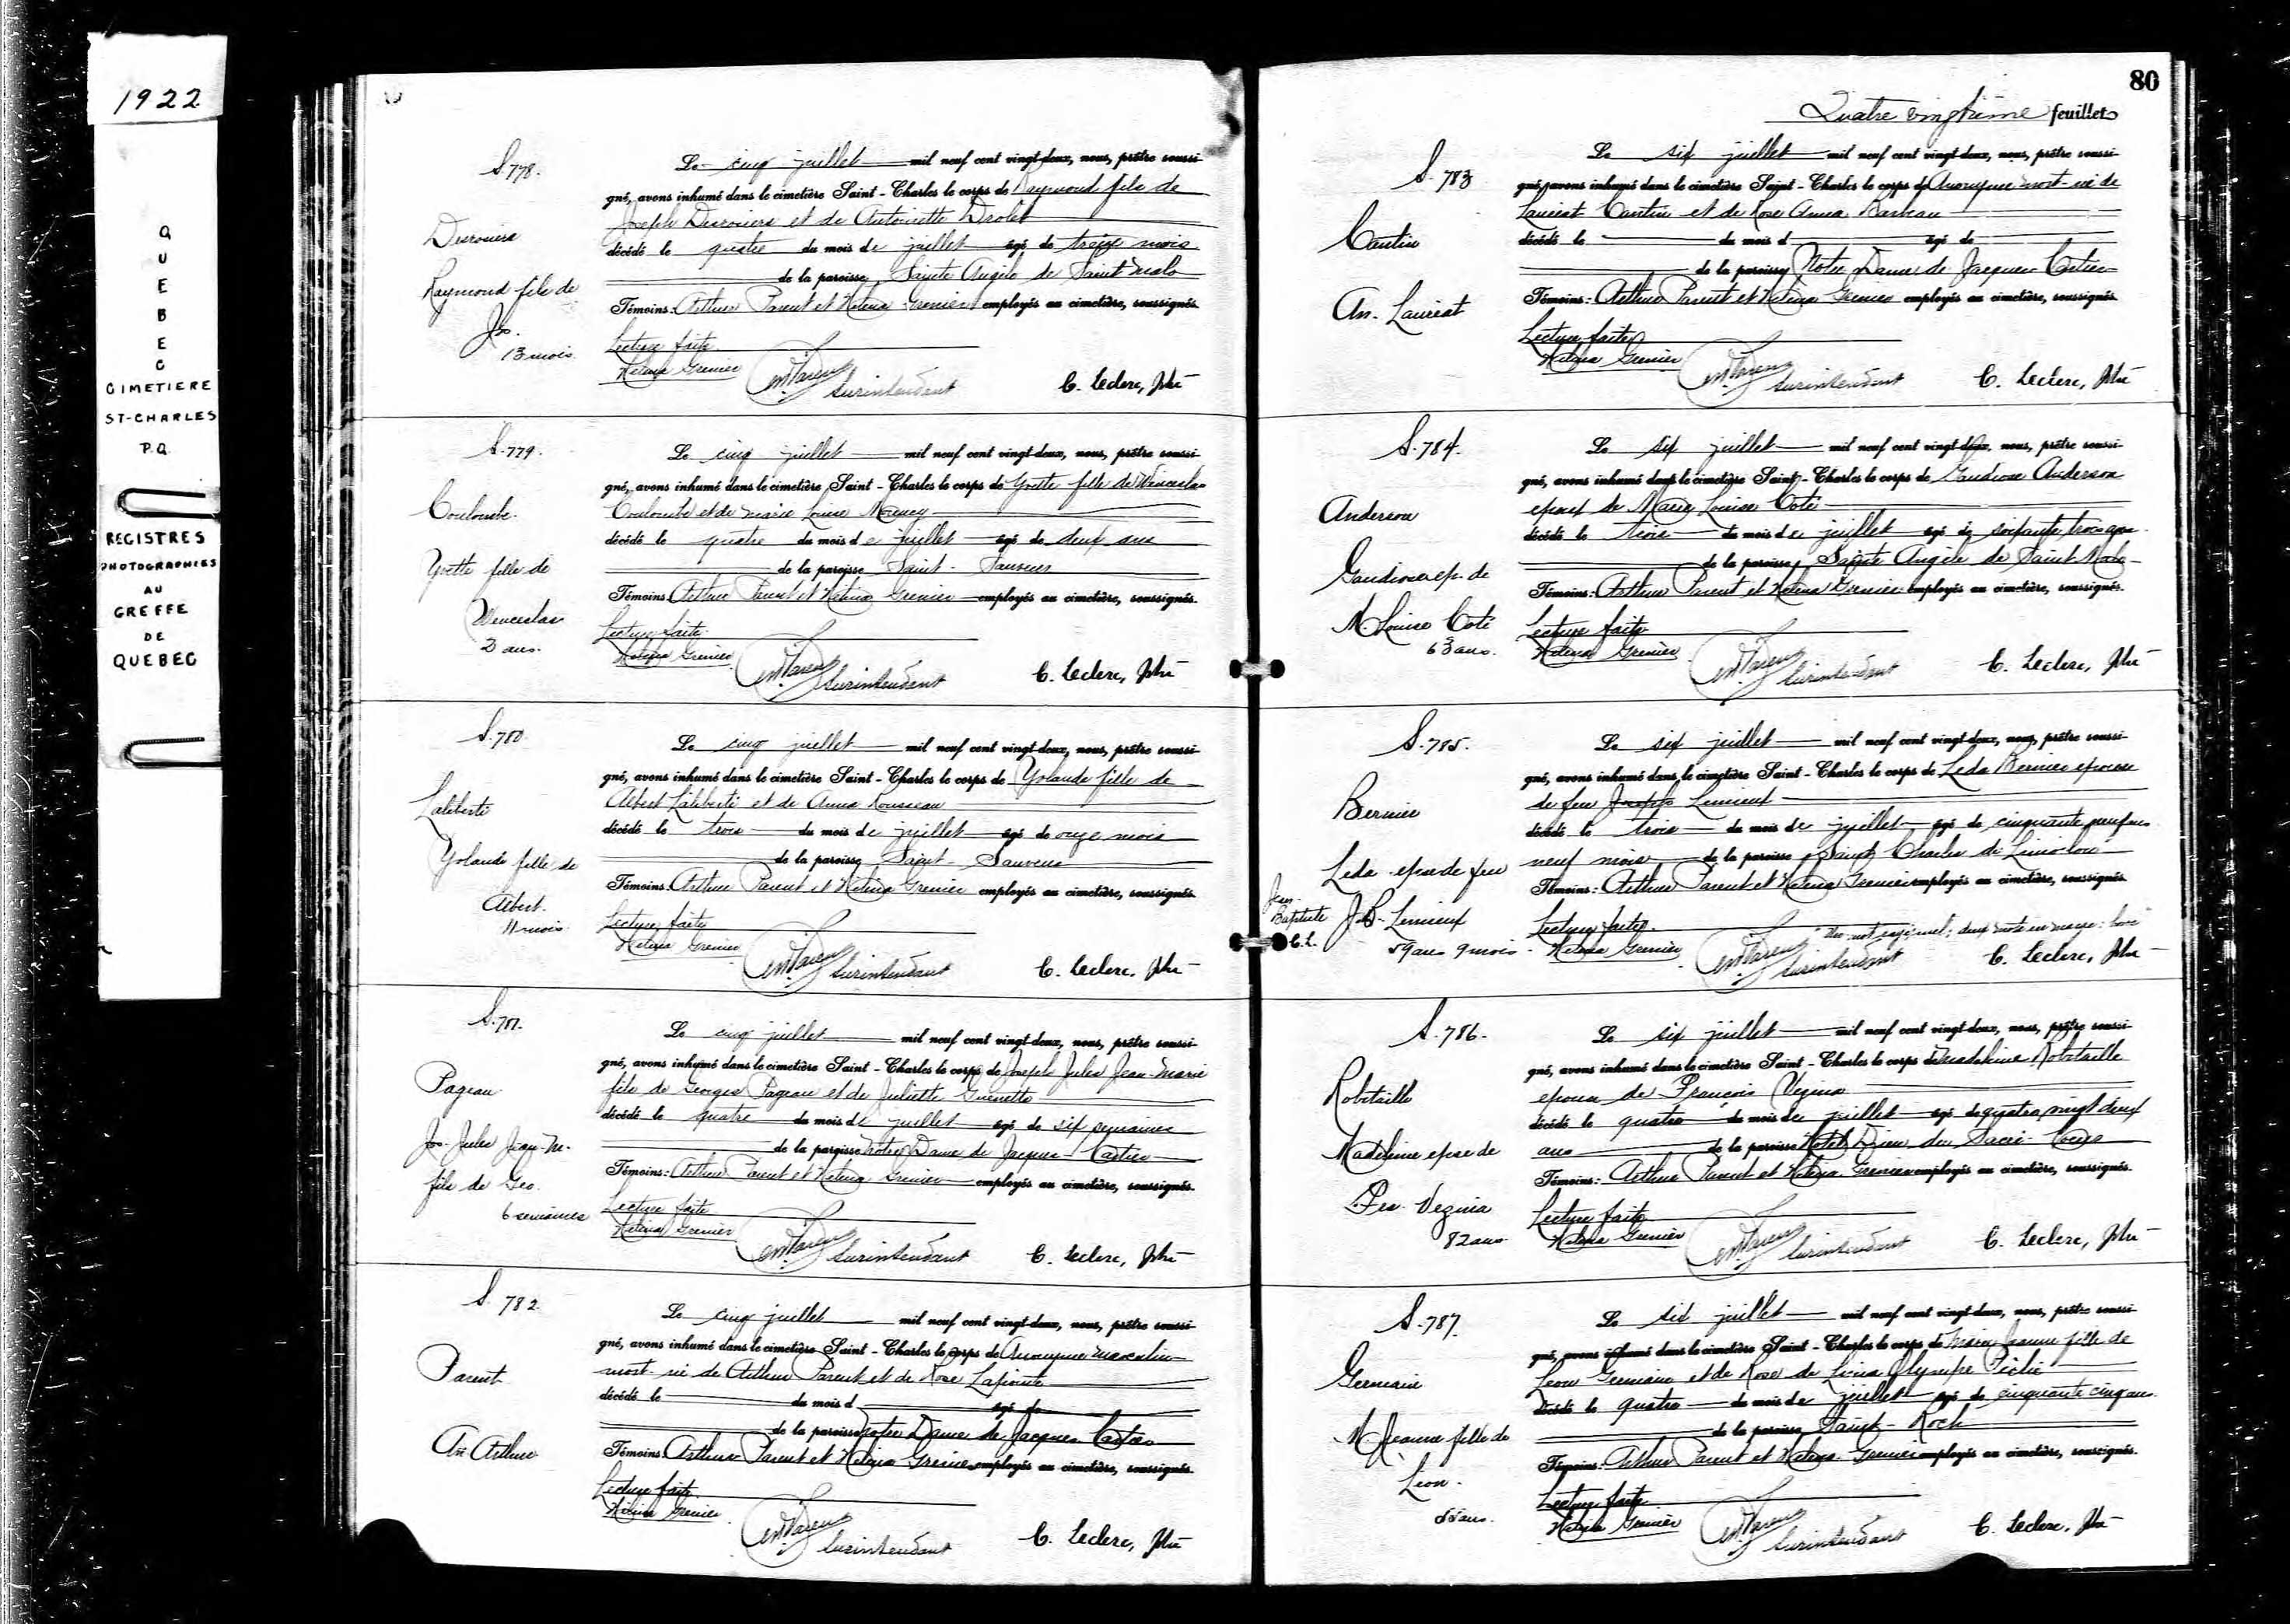 1922
QUEBEC
CIMETIERE
ST-CHARLES
P.Q.
REGISTRES
PHOTOGRAPHIES
AU
GREFFE
DE
QUEBEC
S. 778.
Desrouiers
Raymond fils de
Jos.
13 mois.
Le cinq juillet mil neuf cent vingt-deux, nous, prêtre soussi-
gné, avons inhumé dans le cimetière Saint-Charles le corps de Raymond fils de
Joseph Desroviers et de Antoinette Drolet
décédé le quatre du mois de juillet âgé de treize mois
de la paroisse Sainte Angèle de Saint Malo
Témoins: Arthur Parent et Helena Grenier employés au cimetière, soussignés.
Lecture faite.
Helena Grenier
Surintendant
C. Leclerc, Ptre
S. 779.
Coulombe.
Yvette fille de
Wenceslas
2 ans.
Le cinq juillet mil neuf cent vingt-deux, nous, prêtre soussi-
gné, avons inhumé dans le cimetière Saint-Charles le corps de Yvette fille de Wenceslas
Coulombe et de Marie Louise Morency
décédé le quatre du mois de juillet âgé de deux ans
de la paroisse Saint-Sauveur
Témoins: Arthur Parent et Helena Grenier employés au cimetière, soussignés.
Lecture faite.
Helena Grenier
Surintendant
C. Leclerc, Ptre
S. 780.
Laliberté
Yolande fille de
Albert.
11 mois.
Le cinq juillet mil neuf cent vingt-deux, nous, prêtre soussi-
gné, avons inhumé dans le cimetière Saint-Charles le corps de Yolande fille de
Albert Laliberté et de Anna Rousseau
décédé le trois du mois de juillet âgé de onze mois
de la paroisse Saint-Sauveur
Témoins: Arthur Parent et Helena Grenier employés au cimetière, soussignés.
Lecture faite
Helena Grenier
Surintendant
C. Leclerc, Ptre
S. 781.
Pageau
Jos. Jules Jean-M.
fils de Geo.
6 semaines
Le cinq juillet mil neuf cent vingt-deux, nous, prêtre soussi-
gné, avons inhumé dans le cimetière Saint-Charles le corps de Joseph Jules Jean-Marie
fils de Georges Pageau et de Juliette Guenette
décédé le quatre du mois de juillet âgé de six semaines
de la paroisse Notre Dame de Jacques-Cartier
Témoins: Arthur Parent et Helena Grenier employés au cimetière, soussignés.
Lecture faite
Helena Grenier
Surintendant
C. Leclerc, Ptre
S. 782.
Parent
An Arthur
Le cinq juillet mil neuf cent vingt-deux, nous, prêtre soussi-
gné, avons inhumé dans le cimetière Saint-Charles le corps de Anonyme masculin
mort-né de Arthur Parent et de Rose Lapointe
décédé le du mois d âgé de
de la paroisse Notre Dame de Jacques Cartier
Témoins: Arthur Parent et Helena Grenier employés au cimetière, soussignés.
Lecture faite.
Helena Grenier
Surintendant
C. Leclerc, Ptre
80
Quatre vingtième feuillet
S. 783
Cantin
An. Lauréat
Le six juillet mil neuf cent vingt-deux, nous, prêtre soussi-
gné, avons inhumé dans le cimetière Saint-Charles le corps de Anonyme mort-né de
Lauréat Cantin et de Rose Anna Barbeau
décédé le du mois d âgé de
de la paroisse Notre Dame de Jacques Cartier
Témoins: Arthur Parent et Helena Grenier employés au cimetière, soussignés.
Lecture faite
Helena Grenier
Surintendant
C. Leclerc, Ptre
S. 784.
Anderson
Gaudiose ep. de
M. Louise Coté
63 ans.
Le six juillet mil neuf cent vingt-deux, nous, prêtre soussi-
gné, avons inhumé dans le cimetière Saint-Charles le corps de Gaudiose Anderson
epoux de Marie Louise Coté
décédé le trois du mois de juillet âgé de soixante trois ans
de la paroisse Sainte Angèle de Saint Malo
Témoins: Arthur Parent et Helena Grenier employés au cimetière, soussignés.
Lecture faite
Helena Grenier
Surintendant
C. Leclerc, Ptre
S. 785.
Bernier
Leda epse de feu
Jean-
Baptiste
C.L.
J.B. Lemieux
59 ans 9 mois
Le six juillet mil neuf cent vingt-deux, nous, prêtre soussi-
gné, avons inhumé dans le cimetière Saint-Charles le corps de Leda Bernier epouse
de feu Joseph Lemieux
décédé le trois du mois de juillet âgé de cinquante neuf ans
neuf mois de la paroisse Saint Charles de Limoilou
Témoins: Arthur Parent et Helena Grenier employés au cimetière, soussignés.
Lecture faite.
Helena Grenier
Surintendant
C. Leclerc, Ptre
S. 786.
Robitaille
Madeleine epse de
Frs. Vezina
82 ans
Le six juillet mil neuf cent vingt-deux, nous, prêtre soussi-
gné, avons inhumé dans le cimetière Saint-Charles le corps de Madeleine Robitaille
epouse de François Vezina
décédé le quatre du mois de juillet âgé de quatre vingt deux
ans de la paroisse Hotel Dieu du Sacré-Coeur
Témoins: Arthur Parent et Helena Grenier employés au cimetière, soussignés.
Lecture faite
Helena Grenier
Surintendant
C. Leclerc, Ptre
S. 787.
Germain
M. Jeanne fille de
Léon.
55 ans.
Le six juillet mil neuf cent vingt-deux, nous, prêtre soussi-
gné, avons inhumé dans le cimetière Saint-Charles le corps de Marie Jeanne fille de
Léon Germain et de Rose de Lima Olympe Piché
décédé le quatre du mois de juillet âgé de cinquante cinq ans
de la paroisse Saint-Roch
Témoins: Arthur Parent et Helena Grenier employés au cimetière, soussignés.
Lecture faite
Helena Grenier
Surintendant
C. Leclerc, Ptre